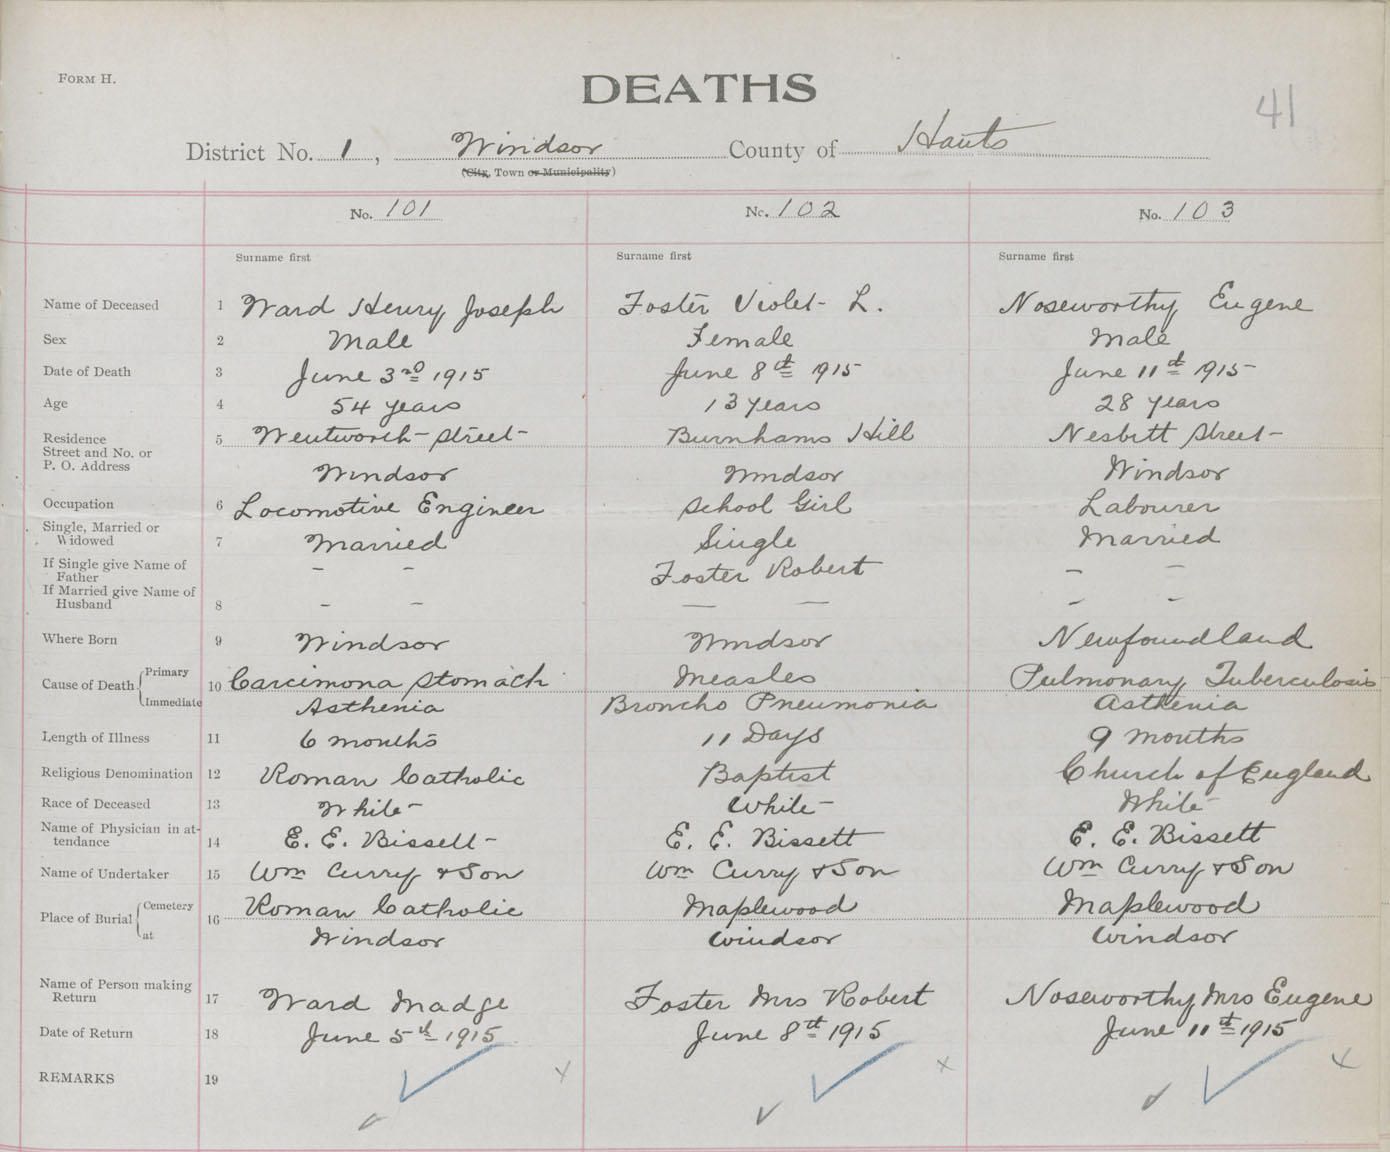 FORM H.
DEATHS
41
District No. 1, Windsor County of Hants
(City, Town or Municipality)
No. 101 No. 102 No. 103
Surname first Surname first Surname first
Name of Deceased 1 Ward Henry Joseph Foster Violet L. Noseworthy Eugene
Sex 2 Male Female Male
Date of Death 3 June 3rd 1915 June 8th 1915 June 11th 1915
Age 4 54 years 13 years 28 years
Residence
Street and No. or 5 Wentworth Street Burnhams Hill Nesbitt Street
P. O. Address Windsor Windsor Windsor
Occupation 6 Locomotive Engineer School Girl Labourer
Single, Married or
Widowed 7 Married Single Married
If Single give Name of
Father – – Foster Robert – –
If Married give Name of
Husband 8 – – – – – –
Where Born 9 Windsor Windsor Newfoundland
Cause of Death { Primary 10 Carcimona Stomach Measles Pulmonary Tuberculosis
Immediate Asthenia Broncho Pneumonia Asthenia
Length of Illness 11 6 months 11 Days 9 months
Religious Denomination 12 Roman Catholic Baptist Church of England
Race of Deceased 13 White White White
Name of Physician in at-
tendance 14 E. E. Bissett E. E. Bissett E. E. Bissett
Name of Undertaker 15 Wm Curry & Son Wm Curry & Son Wm Curry & Son
Place of Burial { Cemetery 16 Roman Catholic Maplewood Maplewood
at Windsor Windsor Windsor
Name of Person making
Return 17 Ward Madge Foster Mrs Robert Noseworthy Mrs Eugene
Date of Return 18 June 5th 1915 June 8th 1915 June 11th 1915
REMARKS 19